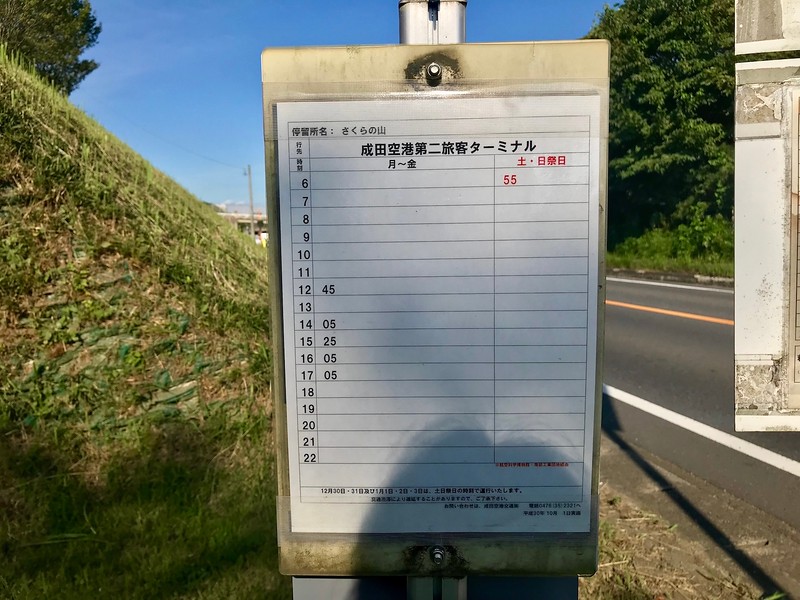 停留所名： さくらの山
行先 成田空港第二旅客ターミナル
時刻 月～金 土・日祭日
6 55
7
8
9
10
11
12 45
13
14 05
15 25
16 05
17 05
18
19
20
21
22
12月30日・31日及び1月1日・2日・3日は、土日祭日の時刻で運行いたします。
交通渋滞により遅延することがありますので、ご了承下さい。